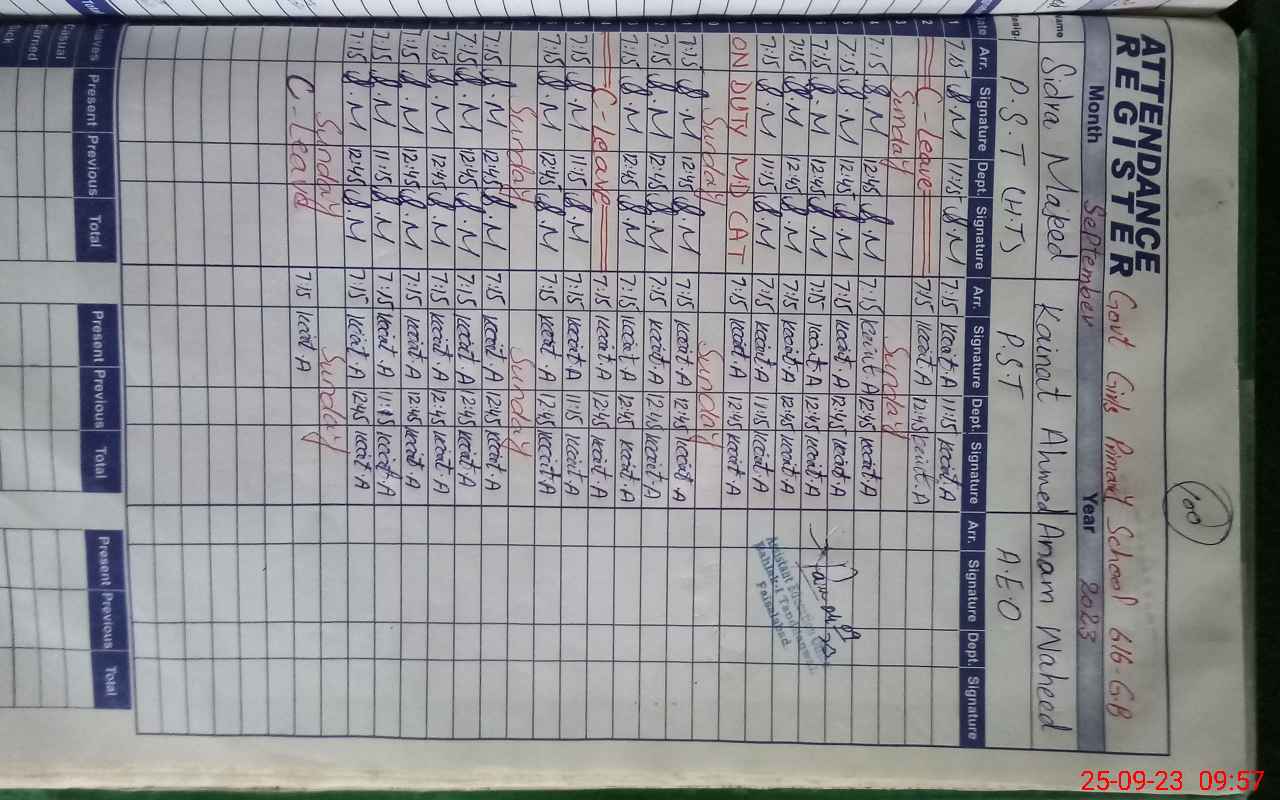 100
ATTENDANCE REGISTER
Govt Girls Primary School 616-GB
Month September Year 2023
Name Sidra Majeed Kainat Ahmed Anam Waheed
Desig. P.S.T (H.T) P.S.T A.E.O
Date Arr. Signature Dept. Signature Arr. Signature Dept. Signature Arr. Signature Dept. Signature
1 7:15 S.M 11:15 S.M 7:15 Kainat.A 11:15 Kainat.A
2 C-Leave 7:15 Kainat.A 12:45 Kainat.A
3 Sunday Sunday
7:15 S.M 12:45 S.M 7:15 Kainat.A 12:45 Kainat.A
7:15 S.M 12:45 S.M 7:15 Kainat.A 12:45 Kainat.A
7:15 S.M 12:45 S.M 7:15 Kainat.A 12:45 Kainat.A
7:15 S.M 12:45 S.M 7:15 Kainat.A 12:45 Kainat.A
7:15 S.M 11:15 S.M 7:15 Kainat.A 11:15 Kainat.A
ON DUTY MDCAT 7:15 Kainat.A 12:45 Kainat.A
Sunday Sunday
7:15 S.M 12:45 S.M 7:15 Kainat.A 12:45 Kainat.A
7:15 S.M 12:45 S.M 7:15 Kainat.A 12:45 Kainat.A
7:15 S.M 12:45 S.M 7:15 Kainat.A 12:45 Kainat.A
C-Leave 7:15 Kainat.A 12:45 Kainat.A
7:15 S.M 11:15 S.M 7:15 Kainat.A 11:15 Kainat.A
7:15 S.M 12:45 S.M 7:15 Kainat.A 12:45 Kainat.A
Sunday Sunday
7:15 S.M 12:45 S.M 7:15 Kainat.A 12:45 Kainat.A
7:15 S.M 12:45 S.M 7:15 Kainat.A 12:45 Kainat.A
7:15 S.M 12:45 S.M 7:15 Kainat.A 12:45 Kainat.A
7:15 S.M 12:45 S.M 7:15 Kainat.A 12:45 Kainat.A
7:15 S.M 11:15 S.M 7:15 Kainat.A 11:15 Kainat.A
7:15 S.M 12:45 S.M 7:15 Kainat.A 12:45 Kainat.A
Sunday Sunday
C-Leave 7:15 Kainat.A
Assistant Education
Faisalabad
Leaves Present Previous Total Present Previous Total Present Previous Total
Casual
25-09-23 09:57